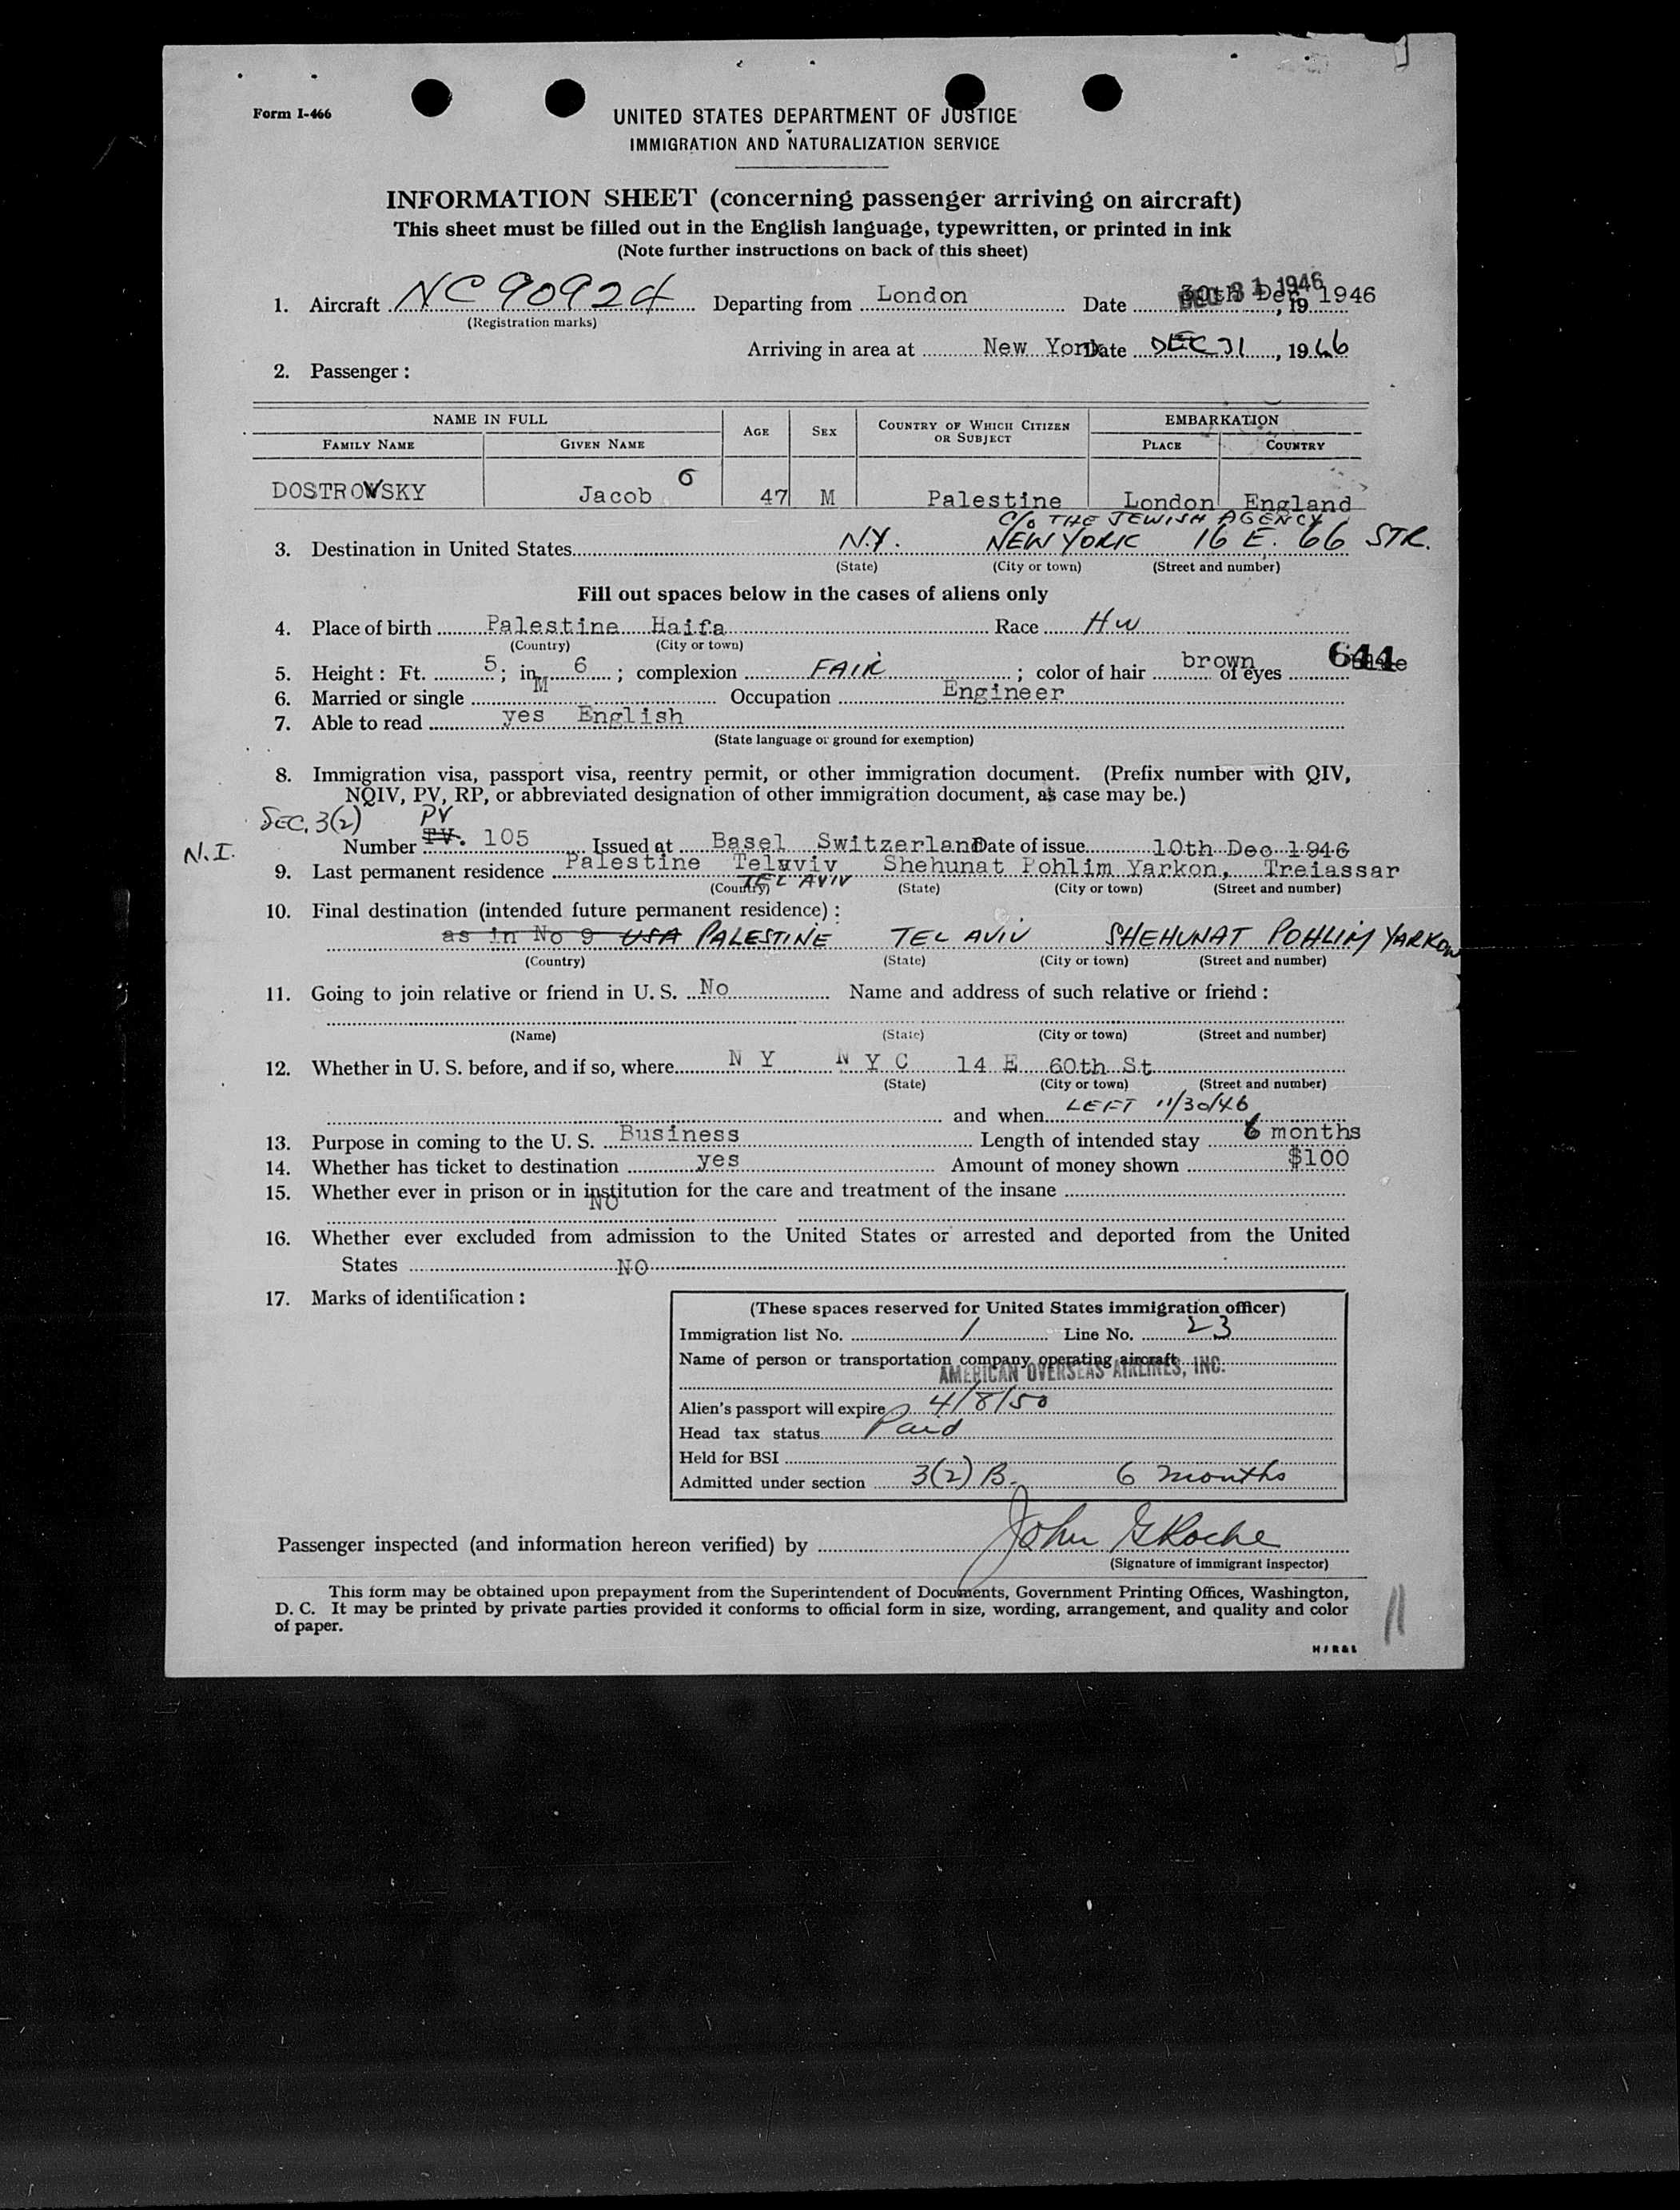 Form I-466
UNITED STATES DEPARTMENT OF JUSTICE
IMMIGRATION AND NATURALIZATION SERVICE
INFORMATION SHEET (concerning passenger arriving on aircraft)
This sheet must be filled out in the English language, typewritten, or printed in ink
(Note further instructions on back of this sheet)
1. Aircraft NC90924 Departing from London Date 30th Dec 1946, 19 DEC 31 1946
(Registration marks)
Arriving in area at New York Date DEC 31, 1946
2. Passenger:
NAME IN FULL AGE SEX COUNTRY OF WHICH CITIZEN OR SUBJECT EMBARKATION
FAMILY NAME GIVEN NAME PLACE COUNTRY
DOSTROVSKY Jacob 47 M Palestine London England
C/O THE JEWISH AGENCY
3. Destination in United States N.Y. NEW YORK 16 E. 66 STR.
(State) (City or town) (Street and number)
Fill out spaces below in the cases of aliens only
4. Place of birth Palestine Haifa Race Hw
(Country) (City or town)
5. Height: Ft. 5; in. 6; complexion FAIR; color of hair brown of eyes 644
6. Married or single M Occupation Engineer
7. Able to read yes English
(State language or ground for exemption)
8. Immigration visa, passport visa, reentry permit, or other immigration document. (Prefix number with QIV,
NQIV, PV, RP, or abbreviated designation of other immigration document, as case may be.)
SEC. 3(2) PV
N.I. Number TV. 105 Issued at Basel Switzerland Date of issue 10th Dec 1946
9. Last permanent residence Palestine Telaviv Shehunat Pohlim Yarkon, Treiassar
(Country) TEL AVIV (State) (City or town) (Street and number)
10. Final destination (intended future permanent residence):
as in No 9 USA PALESTINE TEL AVIV SHEHUNAT POHLIM YARKON
(Country) (State) (City or town) (Street and number)
11. Going to join relative or friend in U. S. No Name and address of such relative or friend:
(Name) (State) (City or town) (Street and number)
12. Whether in U. S. before, and if so, where N Y N Y C 14 E 60th St
(State) (City or town) (Street and number)
and when LEFT 11/30/46
13. Purpose in coming to the U. S. Business Length of intended stay 6 months
14. Whether has ticket to destination yes Amount of money shown $100
15. Whether ever in prison or in institution for the care and treatment of the insane
NO
16. Whether ever excluded from admission to the United States or arrested and deported from the United
States NO
17. Marks of identification:
(These spaces reserved for United States immigration officer)
Immigration list No. 1 Line No. 23
Name of person or transportation company operating aircraft
AMERICAN OVERSEAS AIRLINES, INC.
Alien's passport will expire 4/8/50
Head tax status Paid
Held for BSI
Admitted under section 3(2) B. 6 months
Passenger inspected (and information hereon verified) by John G Roche
(Signature of immigrant inspector)
This form may be obtained upon prepayment from the Superintendent of Documents, Government Printing Offices, Washington,
D. C. It may be printed by private parties provided it conforms to official form in size, wording, arrangement, and quality and color
of paper.
11